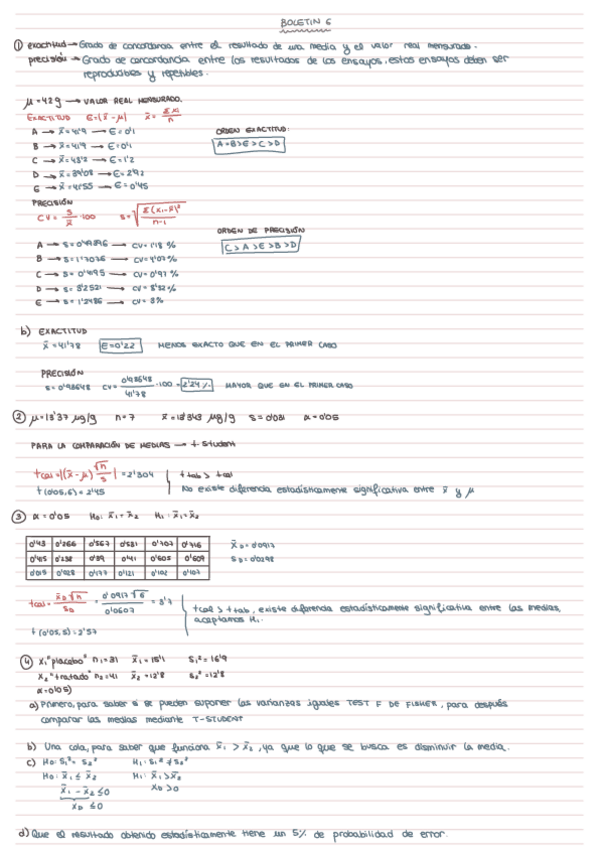 BOLETIN 6
① exactitud → Grado de concordancia entre el resultado de una media y el valor real mensurado.
precisión → Grado de concordancia entre los resultados de los ensayos, estos ensayos deben ser
reproducibles y repetibles.
μ = 42 g → VALOR REAL MENSURADO.
EXACTITUD E=(x̄ - μ) x̄ = Σxi/n
A → x̄ = 41'9 → E = 0'1
B → x̄ = 41'9 → E = 0'1
C → x̄ = 43'2 → E = 1'2
D → x̄ = 39'08 → E = 2'92
E → x̄ = 41'55 → E = 0'45
ORDEN EXACTITUD:
A=B>E>C>D
PRECISIÓN
CV = s/x̄ · 100 s = √(Σ(xi-x̄)²/n-1)
A → s = 0'49396 → CV = 1'18 %
B → s = 1'7036 → CV = 4'07 %
C → s = 0'4195 → CV = 0'97 %
D → s = 3'2521 → CV = 8'32 %
E → s = 1'2486 → CV = 3%
ORDEN DE PRECISIÓN
C>A>E>B>D
b) EXACTITUD
x̄ = 41'78 E = 0'22 MENOS EXACTO QUE EN EL PRIMER CASO
PRECISIÓN
s = 0'93648 CV = 0'93648/41'78 · 100 = 2'24 % MAYOR QUE EN EL PRIMER CASO
② μ = 13'37 μg/g n = 7 x̄ = 13'343 μg/g s = 0'031 α = 0'05
PARA LA COMPARACIÓN DE MEDIAS → t student
tcal = |(x̄ - μ) √n/s| = 2'304 t tab > t cal
t (0'05, 6) = 2'45 No existe diferencia estadísticamente significativa entre x̄ y μ
③ α = 0'05 H0: x̄1 = x̄2 H1: x̄1 ≠ x̄2
0'43 0'266 0'567 0'531 0'707 0'716
0'415 0'238 0'39 0'41 0'605 0'609
0'015 0'028 0'177 0'121 0'102 0'107
x̄D = 0'0917
tcal = x̄D √n/sD = 0'0917 √6/0'0607 = 3'7
t cal > t tab, existe diferencia estadísticamente significativa entre las medias,
aceptamos H1.
t (0'05, 5) = 2'57
④ X1 "placebo" n1 = 31 x̄1 = 15'1 s1² = 16'9
X2 "tratado" n2 = 41 x̄2 = 12'8 s2² = 12'8
α = 0'05)
a) Primero, para saber si se pueden suponer las varianzas iguales TEST F DE FISHER, para después
comparar las medias mediante T-STUDENT
b) Una cola, para saber que funciona x̄1 > x̄2, ya que lo que se busca es disminuir la media.
c) H0: s1² = s2² H1: s1² ≠ s2²
H0: x̄1 ≤ x̄2 H1: x̄1 > x̄2
x̄1 - x̄2 ≤ 0 xD > 0
xD ≤ 0
d) Que el resultado obtenido estadísticamente tiene un 5% de probabilidad de error.